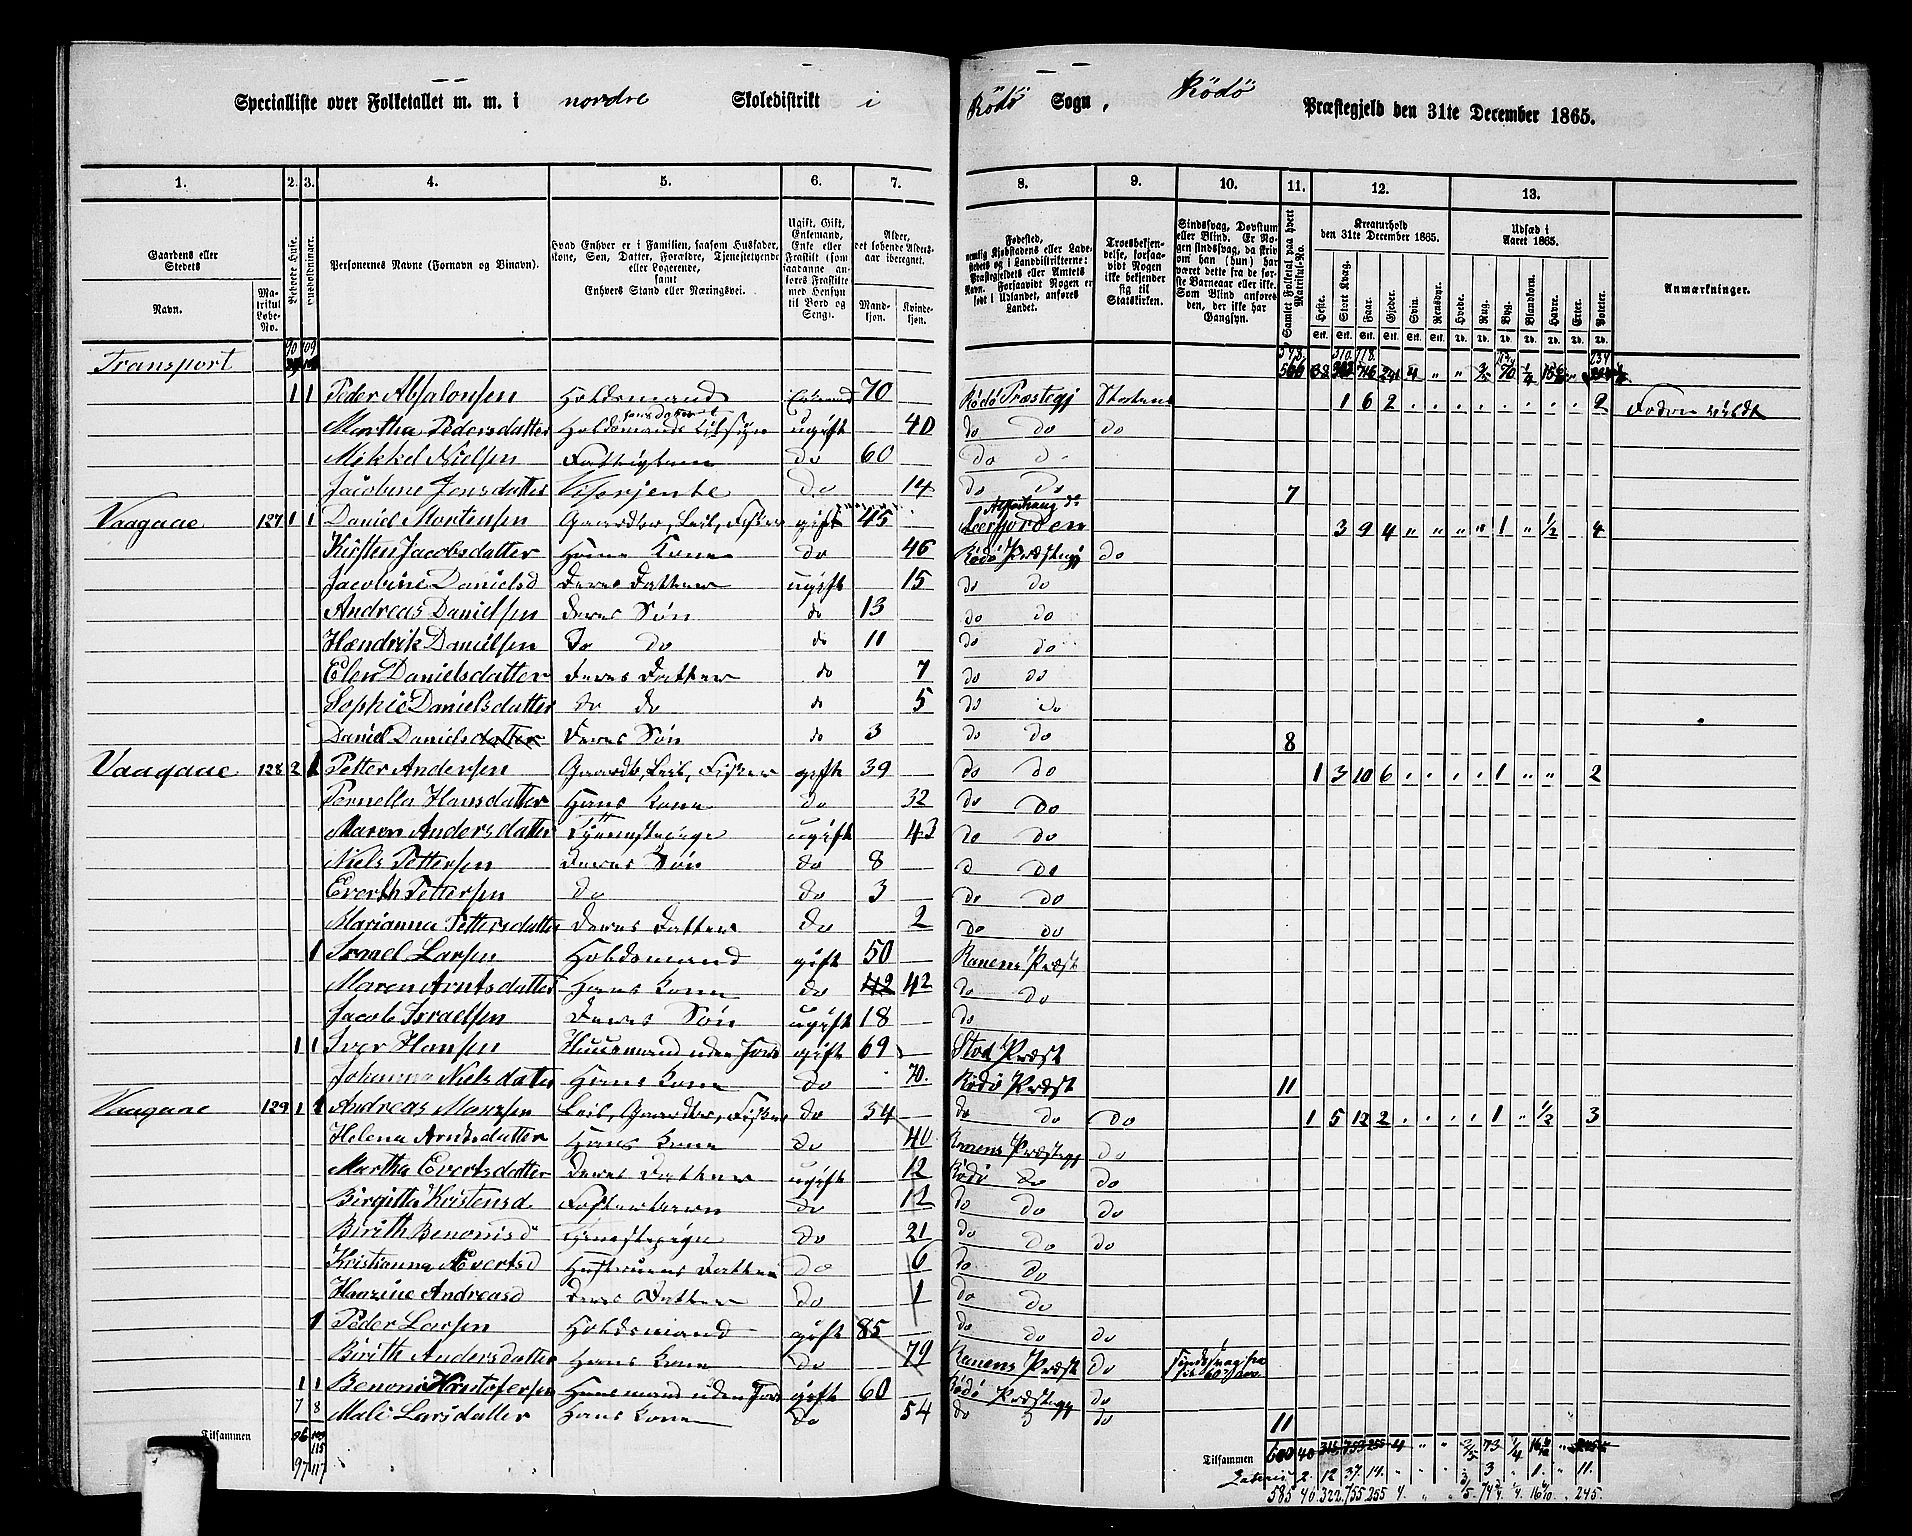 Specialliste over Folketallet m. m. i nordre Skoledistrikt i Rödö Sogn, Rödö Præstegjeld den 31te December 1865.
1. 2. 3. 4. 5. 6. 7. 8. 9. 10. 11. 12. 13.
Gaardens eller Stedets
Navn.
Matrikul Løbe-No.
Beboede Huse.
Huusholdninger.
Personernes Navne (Fornavn og Vinavn).
Hvad Enhver er i Familien, saasom Husfader, Kone, Søn, Datter, Forældre, Tjenestetyende eller Logerende, samt Enhvers Stand eller Næringsvei.
Ugift, Gift, Enkemand, Enke eller Fraskilt
Alder, det løbende Aldersaar iberegnet.
Mandkjøn. Kvindekjøn.
Fødested,
Troesbekjendelse, forsaavidt Nogen ikke bekjender sig til Statskirken.
Samlet Folketal paa hvert Matrikul-No.
Kreaturhold den 31te December 1865.
Udsæd i Aaret 1865.
Heste. Stort Kvæg. Faar. Gjeder. Svin. Rensdyr. Hvede. Rug. Byg. Blandkorn. Havre. Erter. Poteter.
Anmærkninger.
Transport
1 1 Peder Absalonsen Holdsmand 70 Rödö Præstegj 1 6 2 2
Martha Pedersdatter ugift 40 do do do
Mikkel Nielsen do 60 do
Jacobine Jensdatter do 14 do do 7
Vaagaae 127 1 1 Daniel Mortensen Gaardbr, Leil, Fisker gift 45 3 9 4 " " " 1 " 1/2 4
Kirsten Jacobsdatter Hans Kone do 46 Rödö Præstegj do
Jacobine Danielsd Deres Datter ugift 15 do do
Andreas Danielsen Deres Søn do 13 do do
Hendrik Danielsen Do do do 11 do do
Elen Danielsdatter Deres Datter do 7 do do
Sophie Danielsdatter do do do 5 do do
Daniel Danielsdatter Deres Søn do 3 do do 8
Vaagaae 128 2 1 Petter Andersen Gaardb, Leil, Fisker gift 39 do do 1 3 10 6 1 " " 2
Pernella Hansdatter Hans Kone do 32 do do
Maren Andersdatter Tjenestepige ugift 43 do do
Niels Pettersen Deres Søn do 8 do do
Everth Pettersen do do 3 do do
Marianna Pettersdatter Deres Datter do 2 do do
1 Israel Larsen Holdsmand gift 50 Ranens Præst
Maren Arntsdatter Hans Kone do 42 42 do do
Jacob Israelsen Deres Søn ugift 18 do
1 1 Iver Hansen Huusmand uden Jord gift 69 Præst
Johanna Nielsdatter Hans Kone do 70. Rödö Præst 11
Vaagaae 129 1 1 Andreas Leil, Gaardbr, Fisker do 54 do do do 1 5 12 2 1 " 1/2 3
Helena Arntsdatter Hans Kone do 40 Ranens Præstegj do
Martha Evertsdatter Deres Datter ugift 12 Rödö do do
Birgitta Kristensd Fosterbarn do 12 do do do
Birith Benonisd Tjenestepige do 21 do do do
Kristianna Evertsd Hustruens Datter do 6 do do
Andreasd Deres Datter do 1 do do
1 Peder Larsen Holdsmand gift 85 do do do
Birith Andersdatter Hans Kone do 79 Ranens Præst do
1 1 Benoni Kristofersen Huusmand uden Jord gift 60 Rödö Præstegj do
7 8 Mali Larsdatter Hans Kone do 54 do do do 11
Tilsammen 96 115
97 117
Tilsammen 600 40 315 753 255 4 " " 2/5 73 1/4
2. 12 37. 14. 3 1. 11.
585 40 322. 755 255 4. 245.